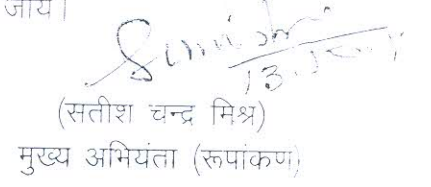 जाय।
(सतीश चन्द्र मिश्र)
मुख्य अभियंता (रूपांकण)